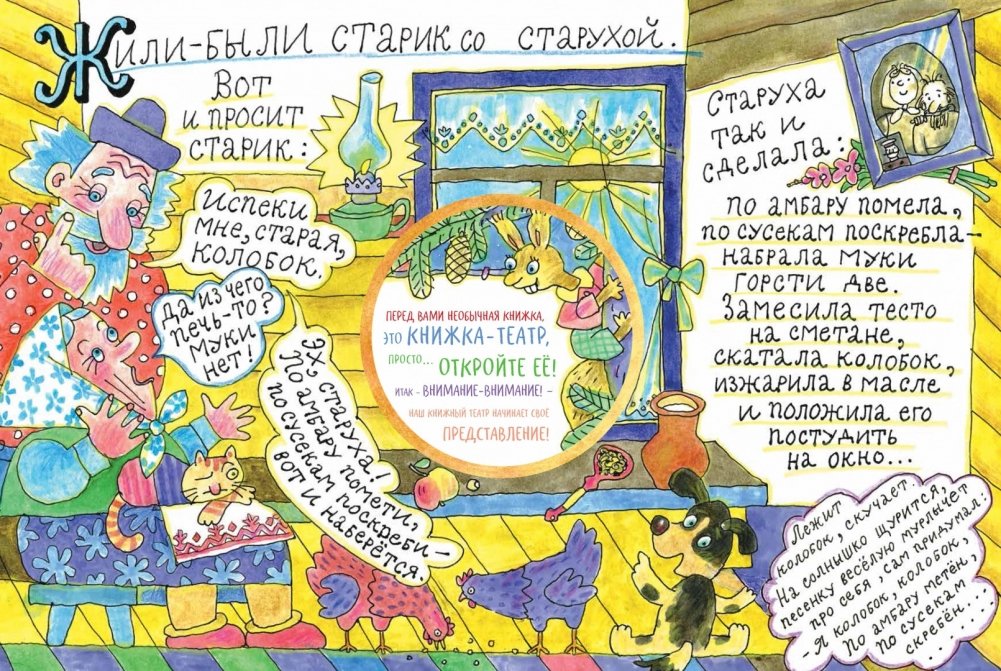 Жили-были старик со старухой.
Вот
и просит
старик:
Испеки
мне, старая,
колобок.
Да из чего
печь-то?
Муки
нет!
Эх, старуха!
По амбару помети,
по сусекам поскреби –
вот и наберётся.
Перед вами необычная книжка,
это книжка-театр,
просто... откройте её!
Итак - внимание-внимание! –
наш книжный театр начинает своё
представление!
Старуха
так и
сделала:
по амбару помела,
по сусекам поскребла –
набрала муки
горсти две.
Замесила тесто
на сметане,
скатала колобок,
изжарила в масле
и положила его
постудить
на окно...
Лежит
колобок, скучает.
На солнышко щурится,
песенку весёлую мурлычет
про себя, сам придумал:
– Я колобок, колобок,
По амбару метён,
по сусекам
скребён...